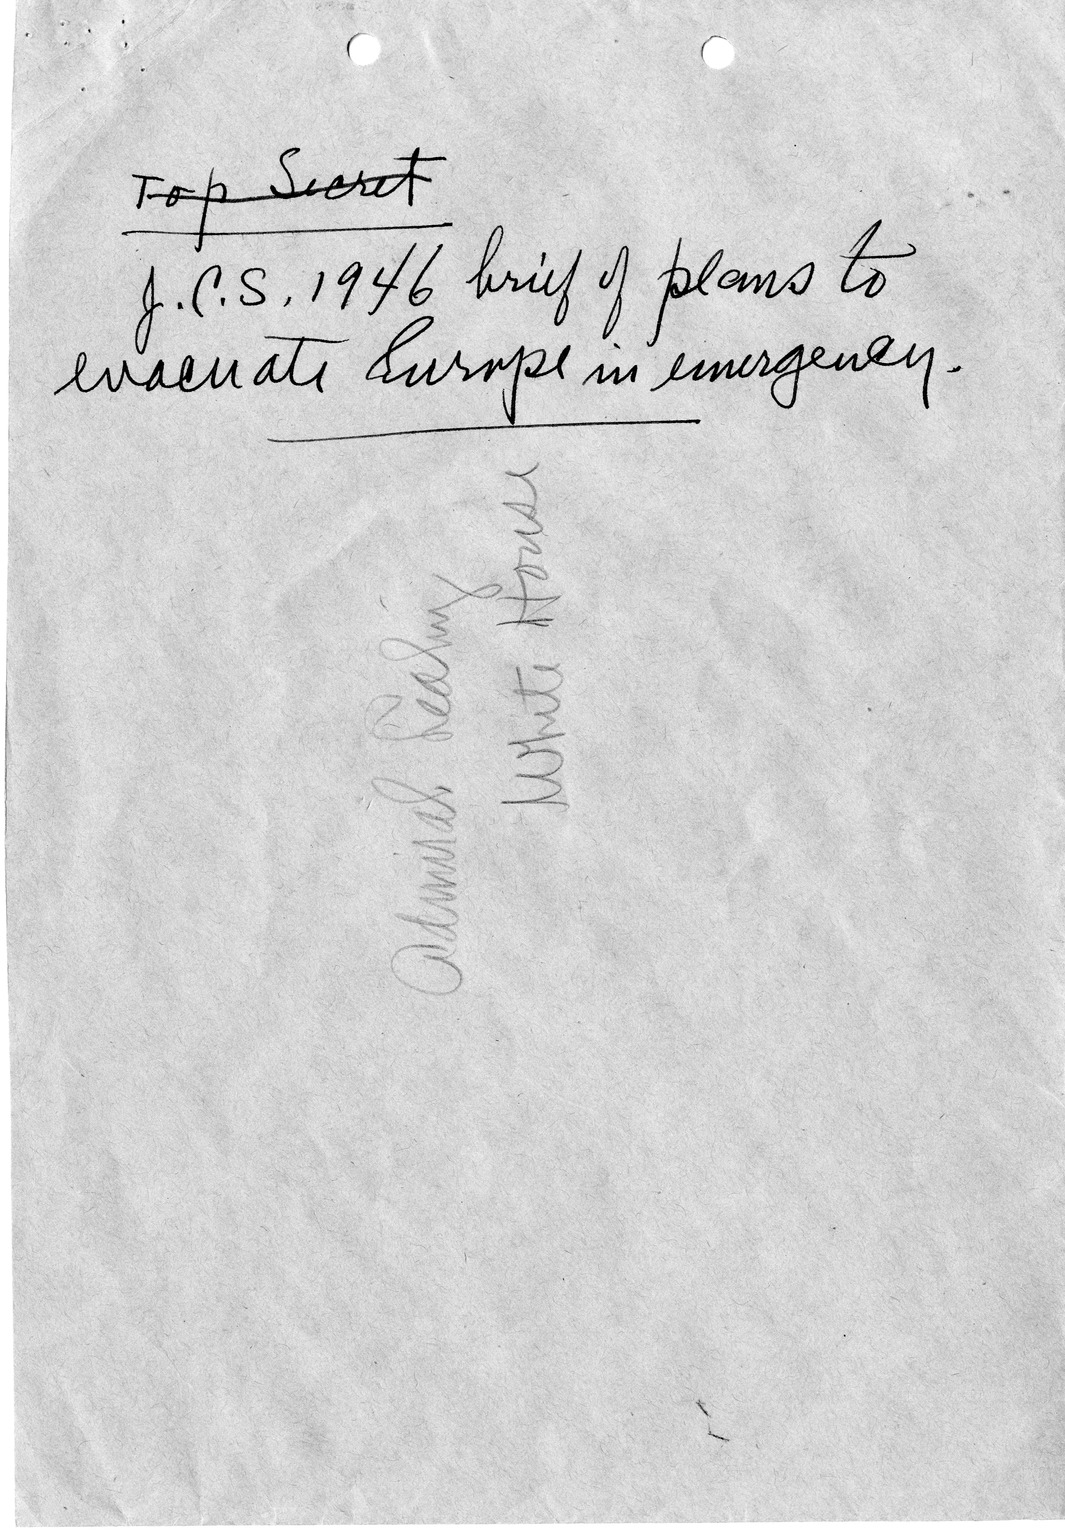 Top Secret
J.C.S. 1946 brief of plans to
evacuate Europe in emergency.
Admiral Leahy
White House